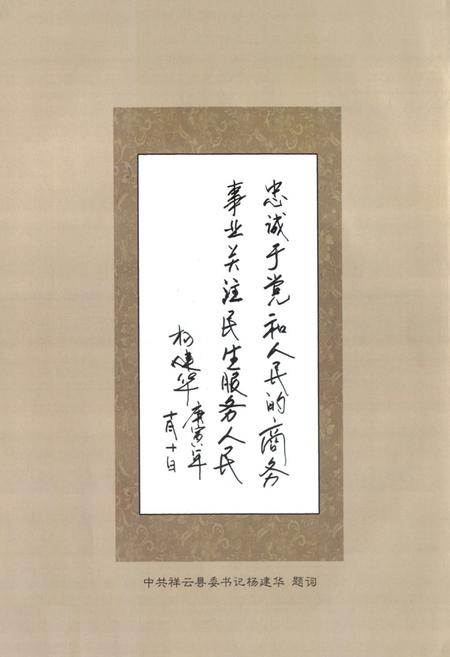 忠诚于党和人民的商务
事业关注民生服务人民
杨建华 庚寅年
十月十日
中共祥云县委书记杨建华 题词